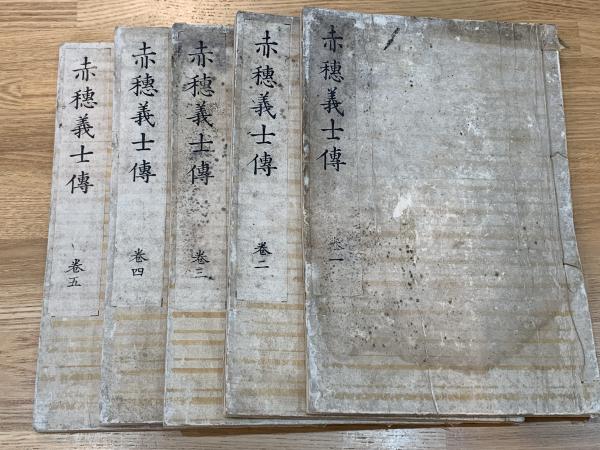 赤穗義士傳
卷一
赤穗義士傳
卷二
赤穗義士傳
卷三
赤穗義士傳
卷四
赤穗義士傳
卷五